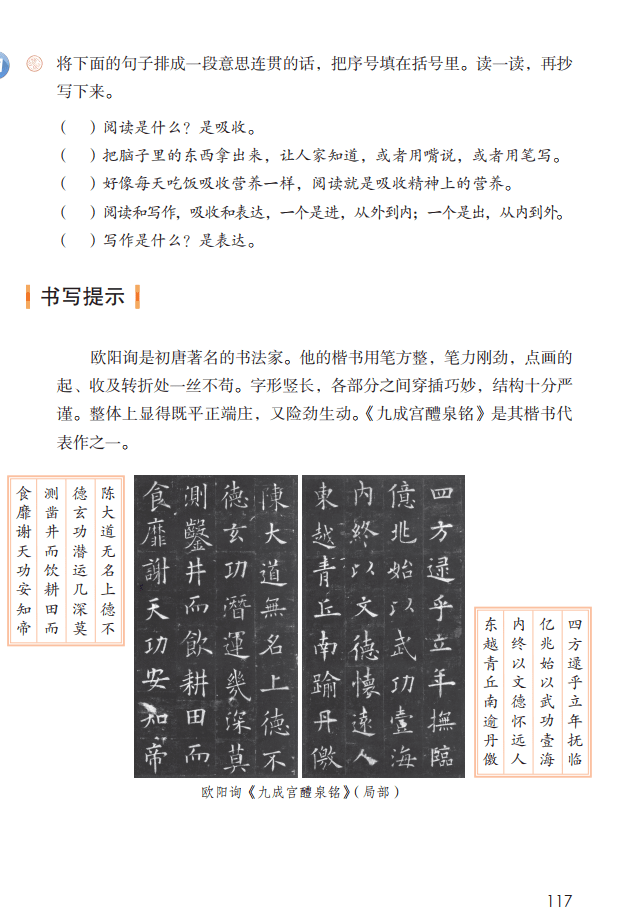 将下面的句子排成一段意思连贯的话，把序号填在括号里。读一读，再抄
写下来。
（　）阅读是什么？是吸收。
（　）把脑子里的东西拿出来，让人家知道，或者用嘴说，或者用笔写。
（　）好像每天吃饭吸收营养一样，阅读就是吸收精神上的营养。
（　）阅读和写作，吸收和表达，一个是进，从外到内；一个是出，从内到外。
（　）写作是什么？是表达。
书写提示
欧阳询是初唐著名的书法家。他的楷书用笔方整，笔力刚劲，点画的
起、收及转折处一丝不苟。字形竖长，各部分之间穿插巧妙，结构十分严
谨。整体上显得既平正端庄，又险劲生动。《九成宫醴泉铭》是其楷书代
表作之一。
四方逯乎立年撫臨
億兆始以武功壹海
内終以文德懷遠人
東越青丘南踰丹儌
陳大道無名上德不
德玄功潛運幾深莫
測鑿井而飲耕田而
食靡謝天功安知帝
四方逯乎立年抚临
亿兆始以武功壹海
内终以文德怀远人
东越青丘南逾丹儌
陈大道无名上德不
德玄功潜运几深莫
测凿井而饮耕田而
食靡谢天功安知帝
欧阳询《九成宫醴泉铭》（局部）
117